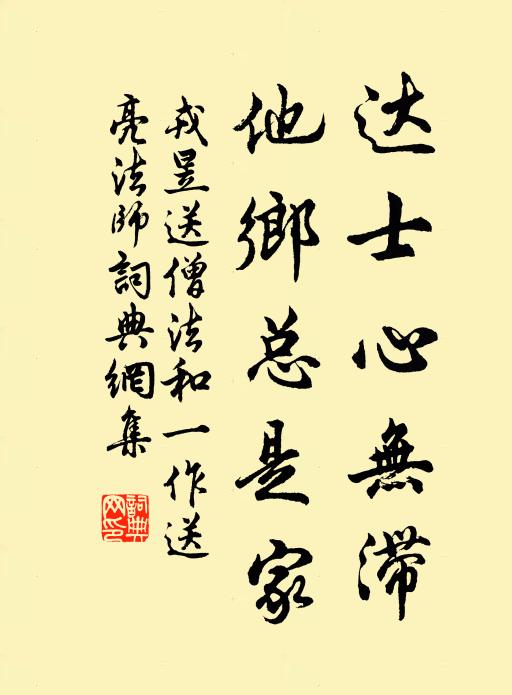 达士心無滯
他鄉总是家
戎昱送僧法和一作送
亮法師詞典網集
詞典
网印